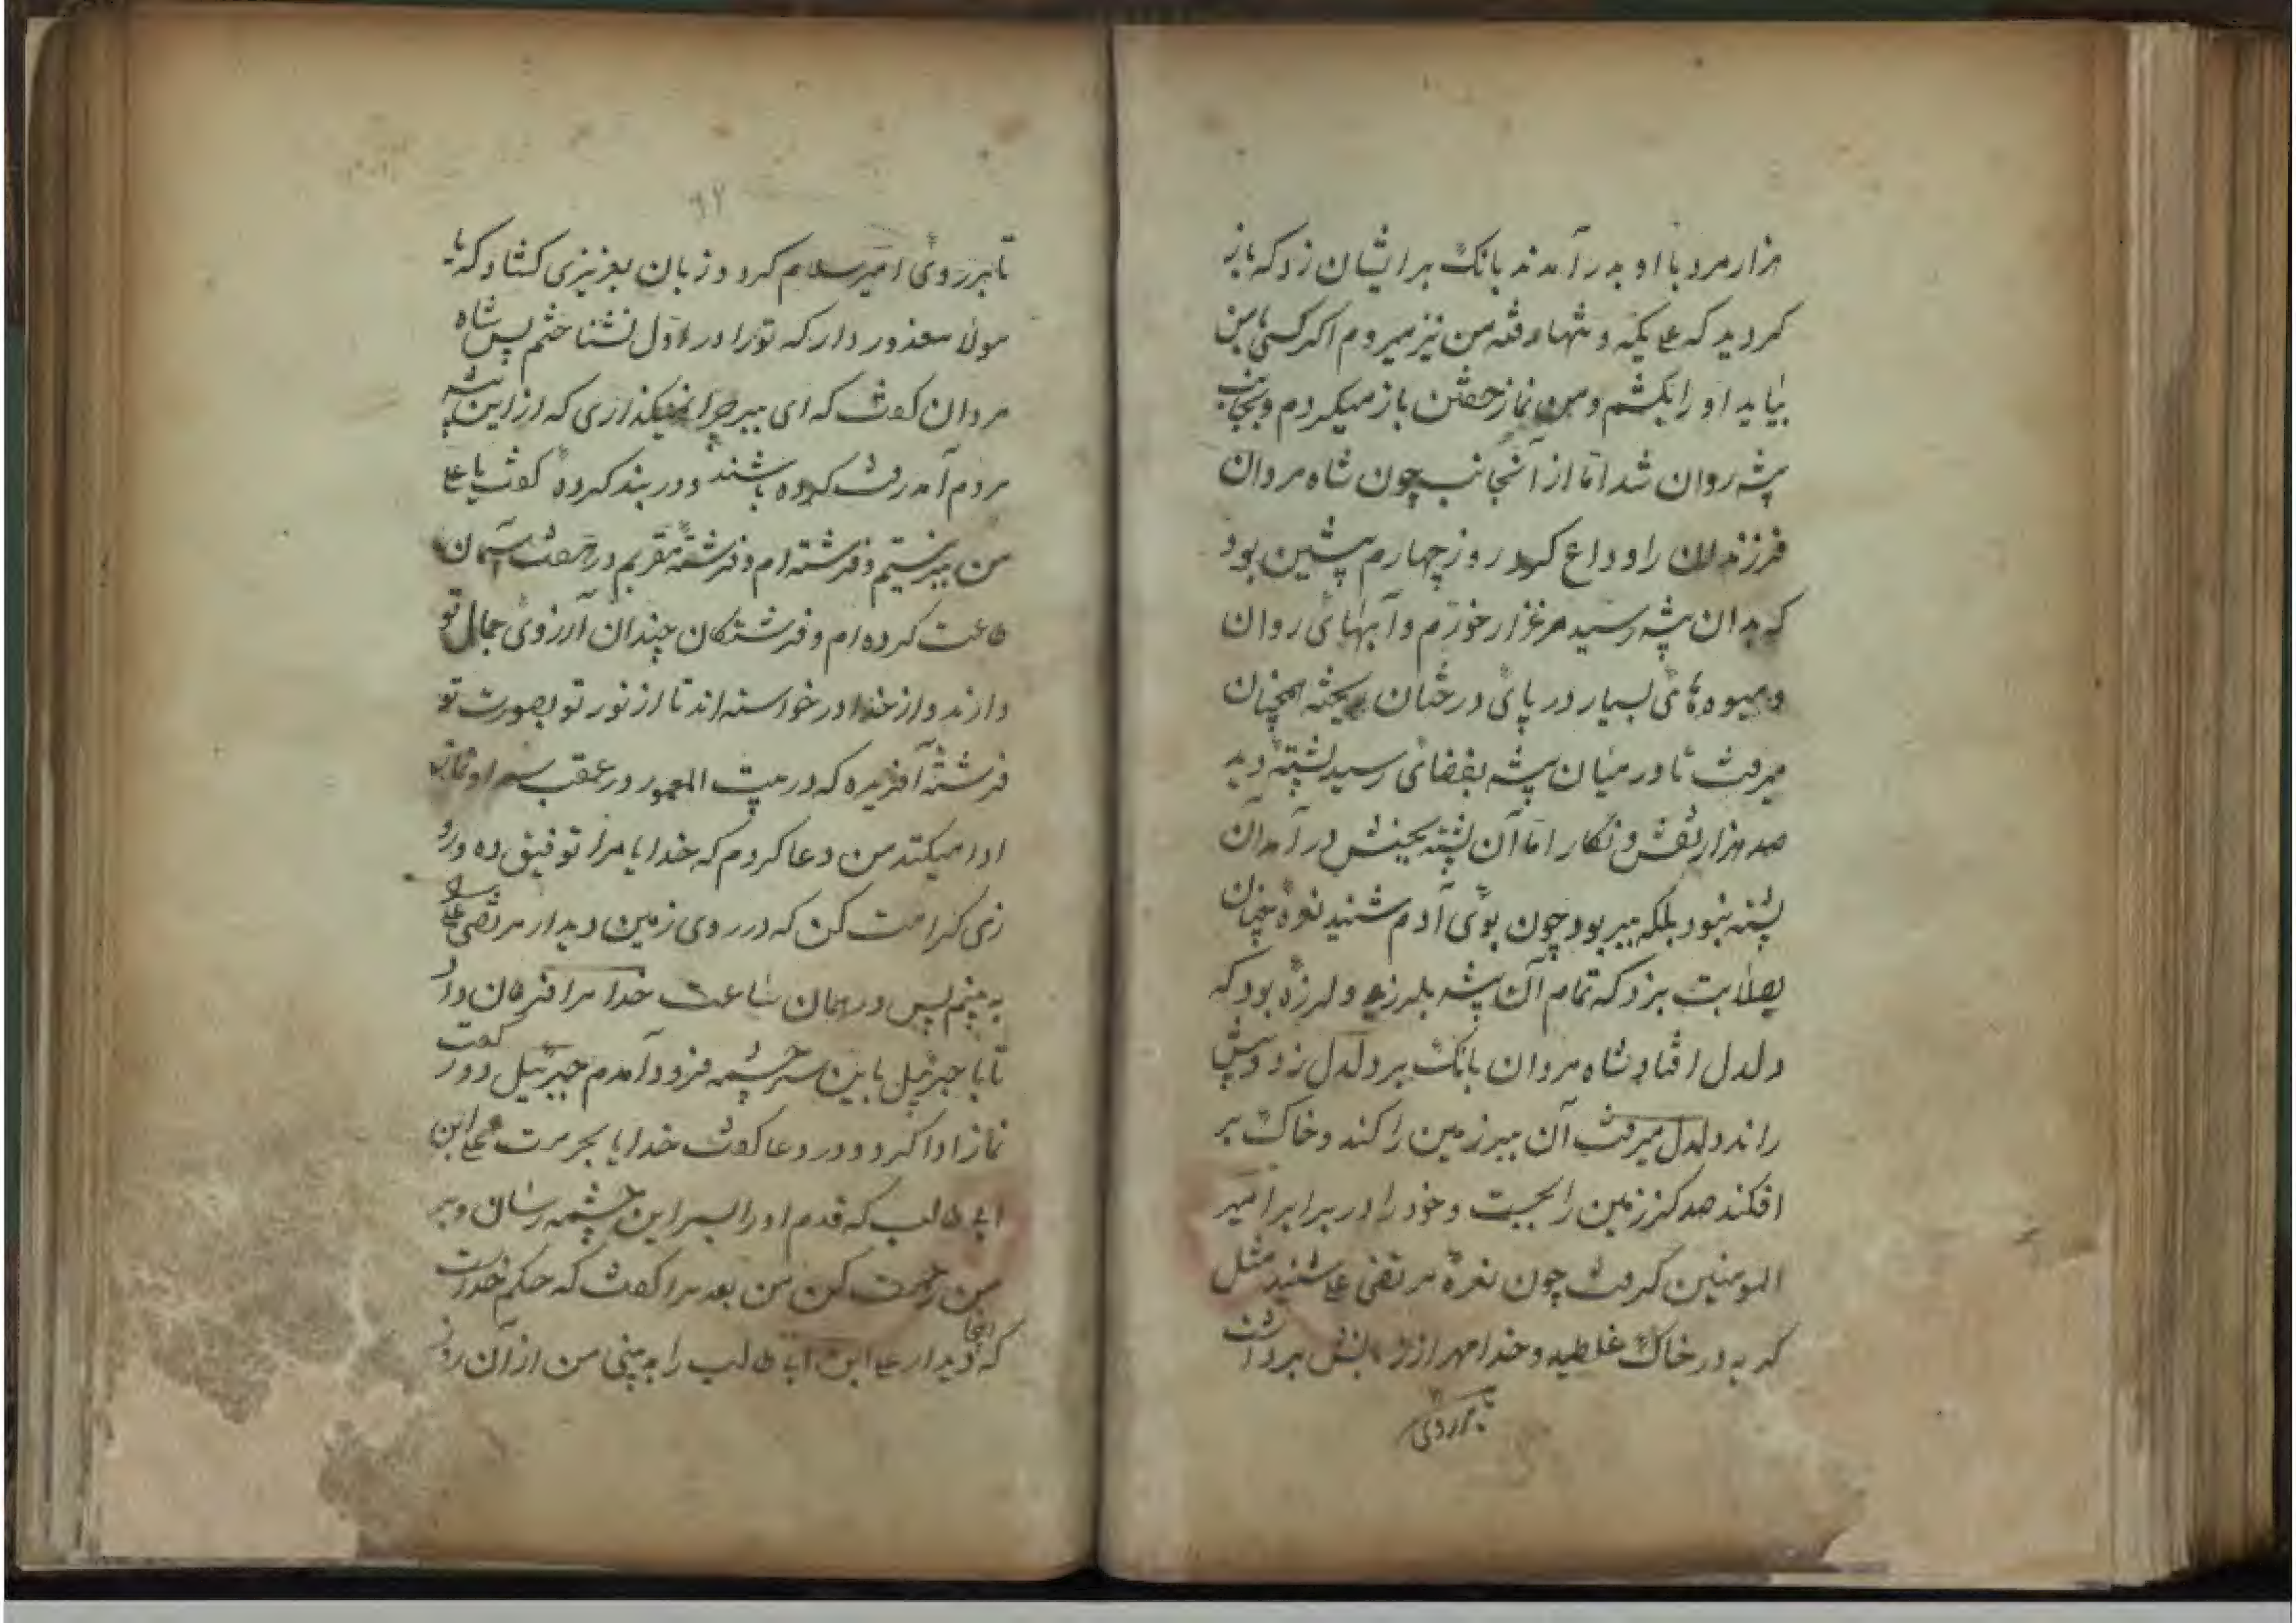 هزار مرد با او بدر آمدند بانک بر ایشان زد که باز
کردید که علی یکه و تنها رفته من نیز میروم اکر کسی با من
بیاید او را بکشم و من نماز خفتن باز میکردم و بجانب
بیشه روان شد اما از آنجانب چون شاه مردان
فرزندان را وداع کرد روز چهارم پیشین بود
که بدان بیشه رسید مرغزار خورم و آبهای روان
و میوه های بسیار در پای درختان ریخته همچنان
میرفت تا در میان بیشه بفضائی رسید پشته دید
صد هزار نقش و نکار اما آن پشته بجنبش در آمد آن
پشته نبود بلکه ببر بود چون بوی آدم شنید نعره چنان
بصلابت بزد که تمام آن بیشه بلرزید و لرزه بود که
دلدل افتاد شاه مردان بانک بر دلدل زد و پیش
راند دلدل میرفت آن ببر زمین را کند و خاک بر
افکند صد کز زمین را بجست و خود را در برابر امیر
المومنین کرفت چون نعره مرتضی علی شنید مثل
کربه در خاک غلطید و خدا مهر از زبانش برداشت
تا بر روی
٦٢
تا بر روی امیر سلام کرد و زبان بعزیزی کشاد که یا
مولا معذور دار که تو را در اول نشناختم پس شاه
مردان کفت که ای ببر چرا نمیکذاری که از این بیشه
مردم آمد رفت کرده باشند و در بند کرده کفت یا علی
من ببر نیستم و فرشته ام و فرشته مقربم در هفت آسمان
طاعت کرده ام و فرشتکان چندان آرزوی جمال تو
دارند و از خدا در خواسته اند تا از نور تو بصورت تو
فرشته آفریده که در بیت المعمور در عقب سر او نماز
ادا میکنند من دعا کردم که خدایا مرا توفیق ده و رو
زی کرامت کن که در روی زمین دیدار مرتضی علی
به بینم پس در همان ساعت خدا مرا فرمان داد
تا با جبرئیل باین سر چشمه فرود آمدم جبرئیل دو رکعت
نماز ادا کرد و در دعا کفت خدایا بحرمت علی ابن
ابی طالب که قدم او را بسر این چشمه رسان و بر
من رحمت کن من بعد مرا کفت که حکم خداست
که اینجا دیدار علی ابن ابا طالب را به بینی من از آن روز